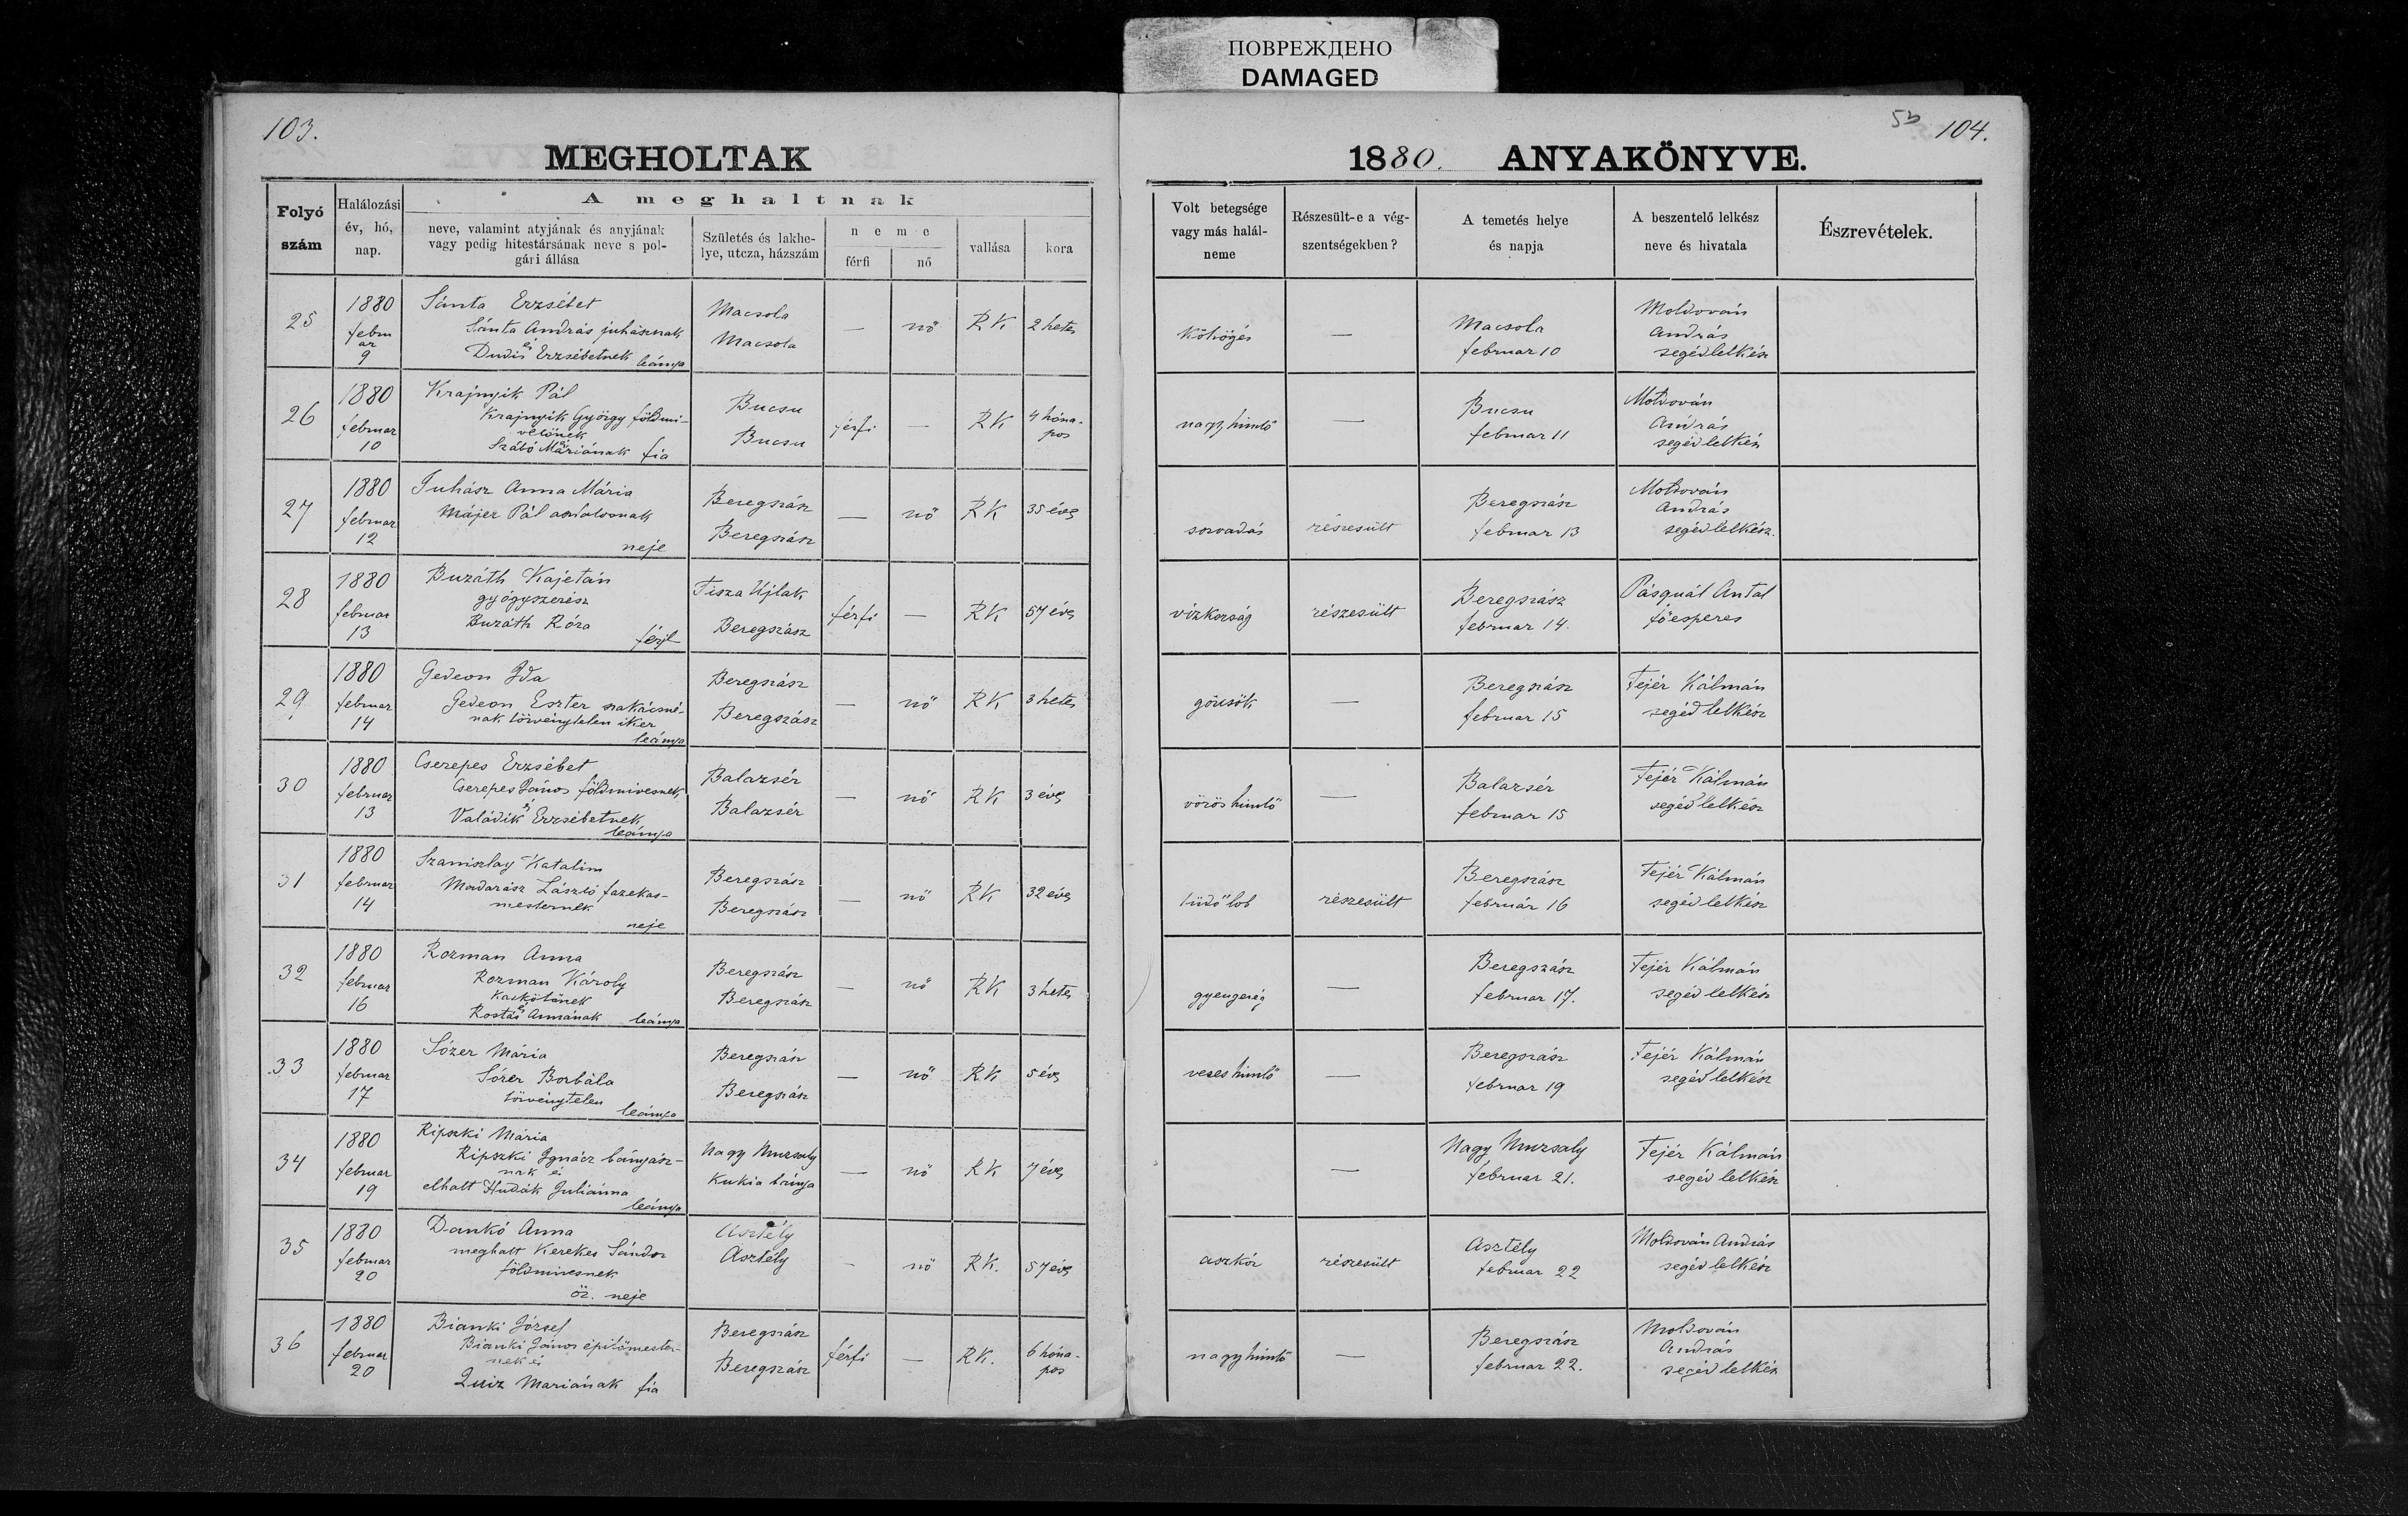 ПОВРЕЖДЕНО
DAMAGED
103.
MEGHOLTAK
Folyó szám
Halálozási év, hó, nap.
A meghaltnak
neve, valamint atyjának és anyjának
vagy pedig hitestársának neve s pol-
gári állása
Születés és lakhe-
lye, utcza, házszám
neme
férfi
nő
vallása
kora
25
1880
febru
ar
9
Sánta Erzsébet
Sánta András juhásznak
és
Dudis Erzsébetnek leánya
Macsola
Macsola
—
nő
RK
2 hetes
26
1880
februar
10
Krajnyik Pál
Krajnyik György földmi-
velőnek
és
Szábó Máriának fia
Bucsu
Bucsu
férfi
—
RK
4 hóna-
pos
27
1880
februar
12
Juhász Anna Mária
Májer Pál asztalosnak
neje
Beregszász
Beregszász
—
nő
RK
35 éves
28
1880
februar
13
Buzáth Kajetán
gyógyszerész
Buzáth Róza
férje
Tisza Ujlak
Beregszász
férfi
—
RK
57 éves
29
1880
februar
14
Gedeon Ida
Gedeon Eszter szakácsné-
nak törvénytelen iker
leánya
Beregszász
Beregszász
—
nő
RK
3 hetes
30
1880
februar
13
Cserepes Erzsébet
Cserepes János földmivesnek
és
Valádik Erzsébetnek
leánya
Balazsér
Balazsér
—
nő
RK
3 éves
31
1880
februar
14
Szaniszlay Katalin
Madarász László fazekas-
mesternek
neje
Beregszász
Beregszász
—
nő
RK
32 éves
32
1880
februar
16
Rozman Anna
Rozman Károly
és
Rostás Annának leánya
Beregszász
Beregszász
—
nő
RK
3 hetes
33
1880
februar
17
Sózer Mária
Sózer Borbála
törvénytelen
leánya
Beregszász
Beregszász
—
nő
RK
5 éves
34
1880
februar
19
Ripszki Mária
Ripszki Ignácz bányász-
nak és
elhalt Hudák Juliánna
leánya
Nagy Muzsaly
Kukia bánya
—
nő
RK
7 éves
35
1880
februar
20
Dankó Anna
meghalt Kerekes Sándor
földmivesnek
öz. neje
Asztély
Asztély
-
nő
RK.
57 éves
36
1880
februar
20
Bianki József
Bianki János épitőmester-
nek és
Mariának fia
Beregszász
Beregszász
férfi
—
RK.
6 hóna-
pos
53
104.
1880. ANYAKÖNYVE.
Volt betegsége
vagy más halál-
neme
Részesült-e a vég-
szentségekben?
A temetés helye
és napja
A beszentelő lelkész
neve és hivatala
Észrevételek.
Köhögés
—
Macsola
februar 10
Moldován
András
segédlelkész
nagy himlő
—
Bucsu
februar 11
Moldován
András
segédlelkész
sorvadás
részesült
Beregszász
februar 13
Moldován
András
segédlelkész.
vízkorság
részesült
Beregszász
februar 14.
Pásquál Antal
főesperes
görcsök
—
Beregszász
februar 15
Fejér Kálmán
segéd lelkész
vörös himlő
—
Balazsér
februar 15
Fejér Kálmán
segéd lelkész
tüdő lob
részesült
Beregszász
február 16
Fejér Kálmán
segéd lelkész
gyengeség
—
Beregszász
februar 17.
Fejér Kálmán
segéd lelkész
veres himlő
—
Beregszász
februar 19
Fejér Kálmán
segéd lelkész
—
Nagy Muzsaly
februar 21.
Fejér Kálmán
segéd lelkész
aszkór
részesült
Asztély
februar 22
Moldován András
segéd lelkész
nagy himlő
—
Beregszász
februar 22.
Moldován
András
segéd lelkész